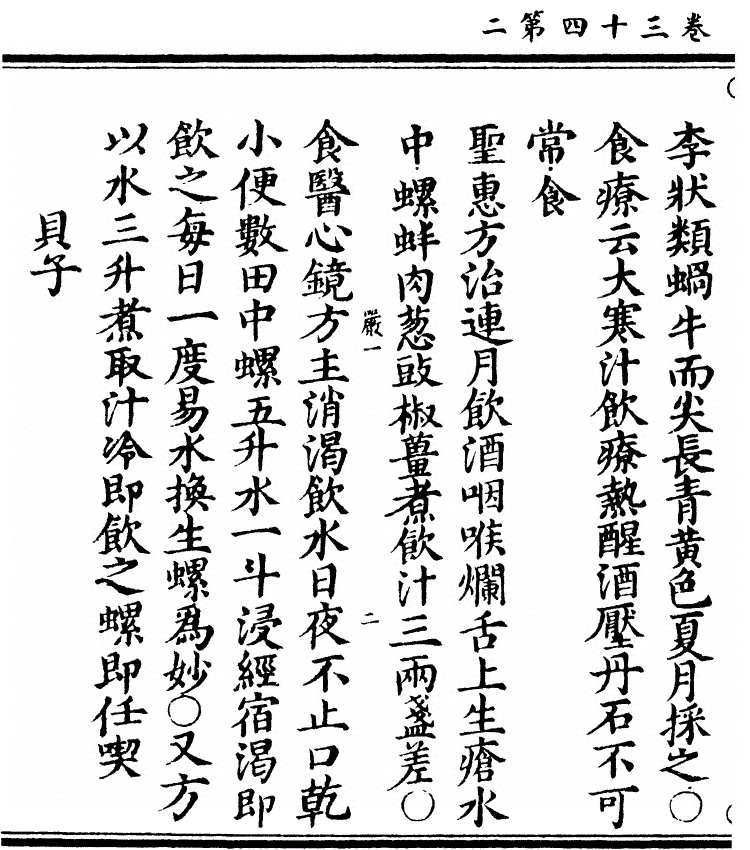 卷三十四第二
李狀類蝸牛而尖長青黃色夏月採之○
食療云大寒汁飲療熱醒酒壓丹石不可
常食
聖惠方治連月飲酒咽喉爛舌上生瘡水
中螺蚌肉葱豉椒薑煮飲汁三兩盞差○
嚴一
二
食醫心鏡方主消渴飲水日夜不止口乾
小便數田中螺五升水一斗浸經宿渴即
飲之每日一度易水換生螺爲妙○又方
以水三升煮取汁冷即飲之螺即任喫
貝子